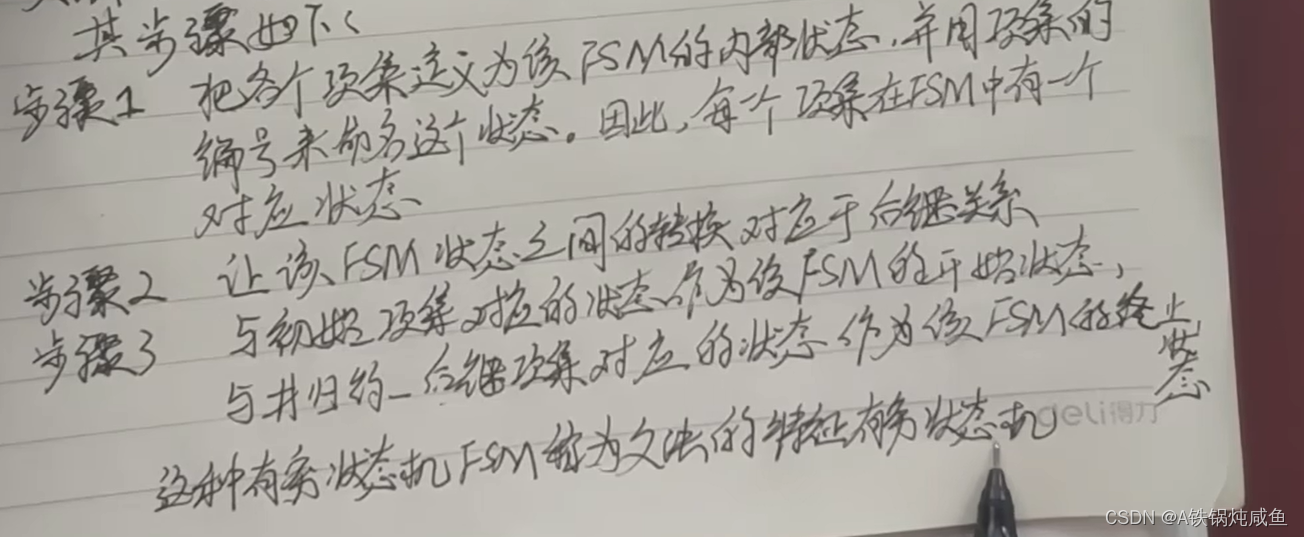 其步骤如下:
步骤1 把各个项集定义为该FSM的内部状态,并用项集的
编号来命名这个状态。因此,每一个项集在FSM中有一个
对应状态
步骤2 让该FSM状态之间的转换对应于后继关系
步骤3 与初始项集对应的状态作为该FSM的开始状态,
与井归约-后继项集对应的状态作为该FSM的终止
状态
这种有穷状态机FSM称为文法的特征有穷状态机
deli得力
CSDN @A铁锅炖咸鱼